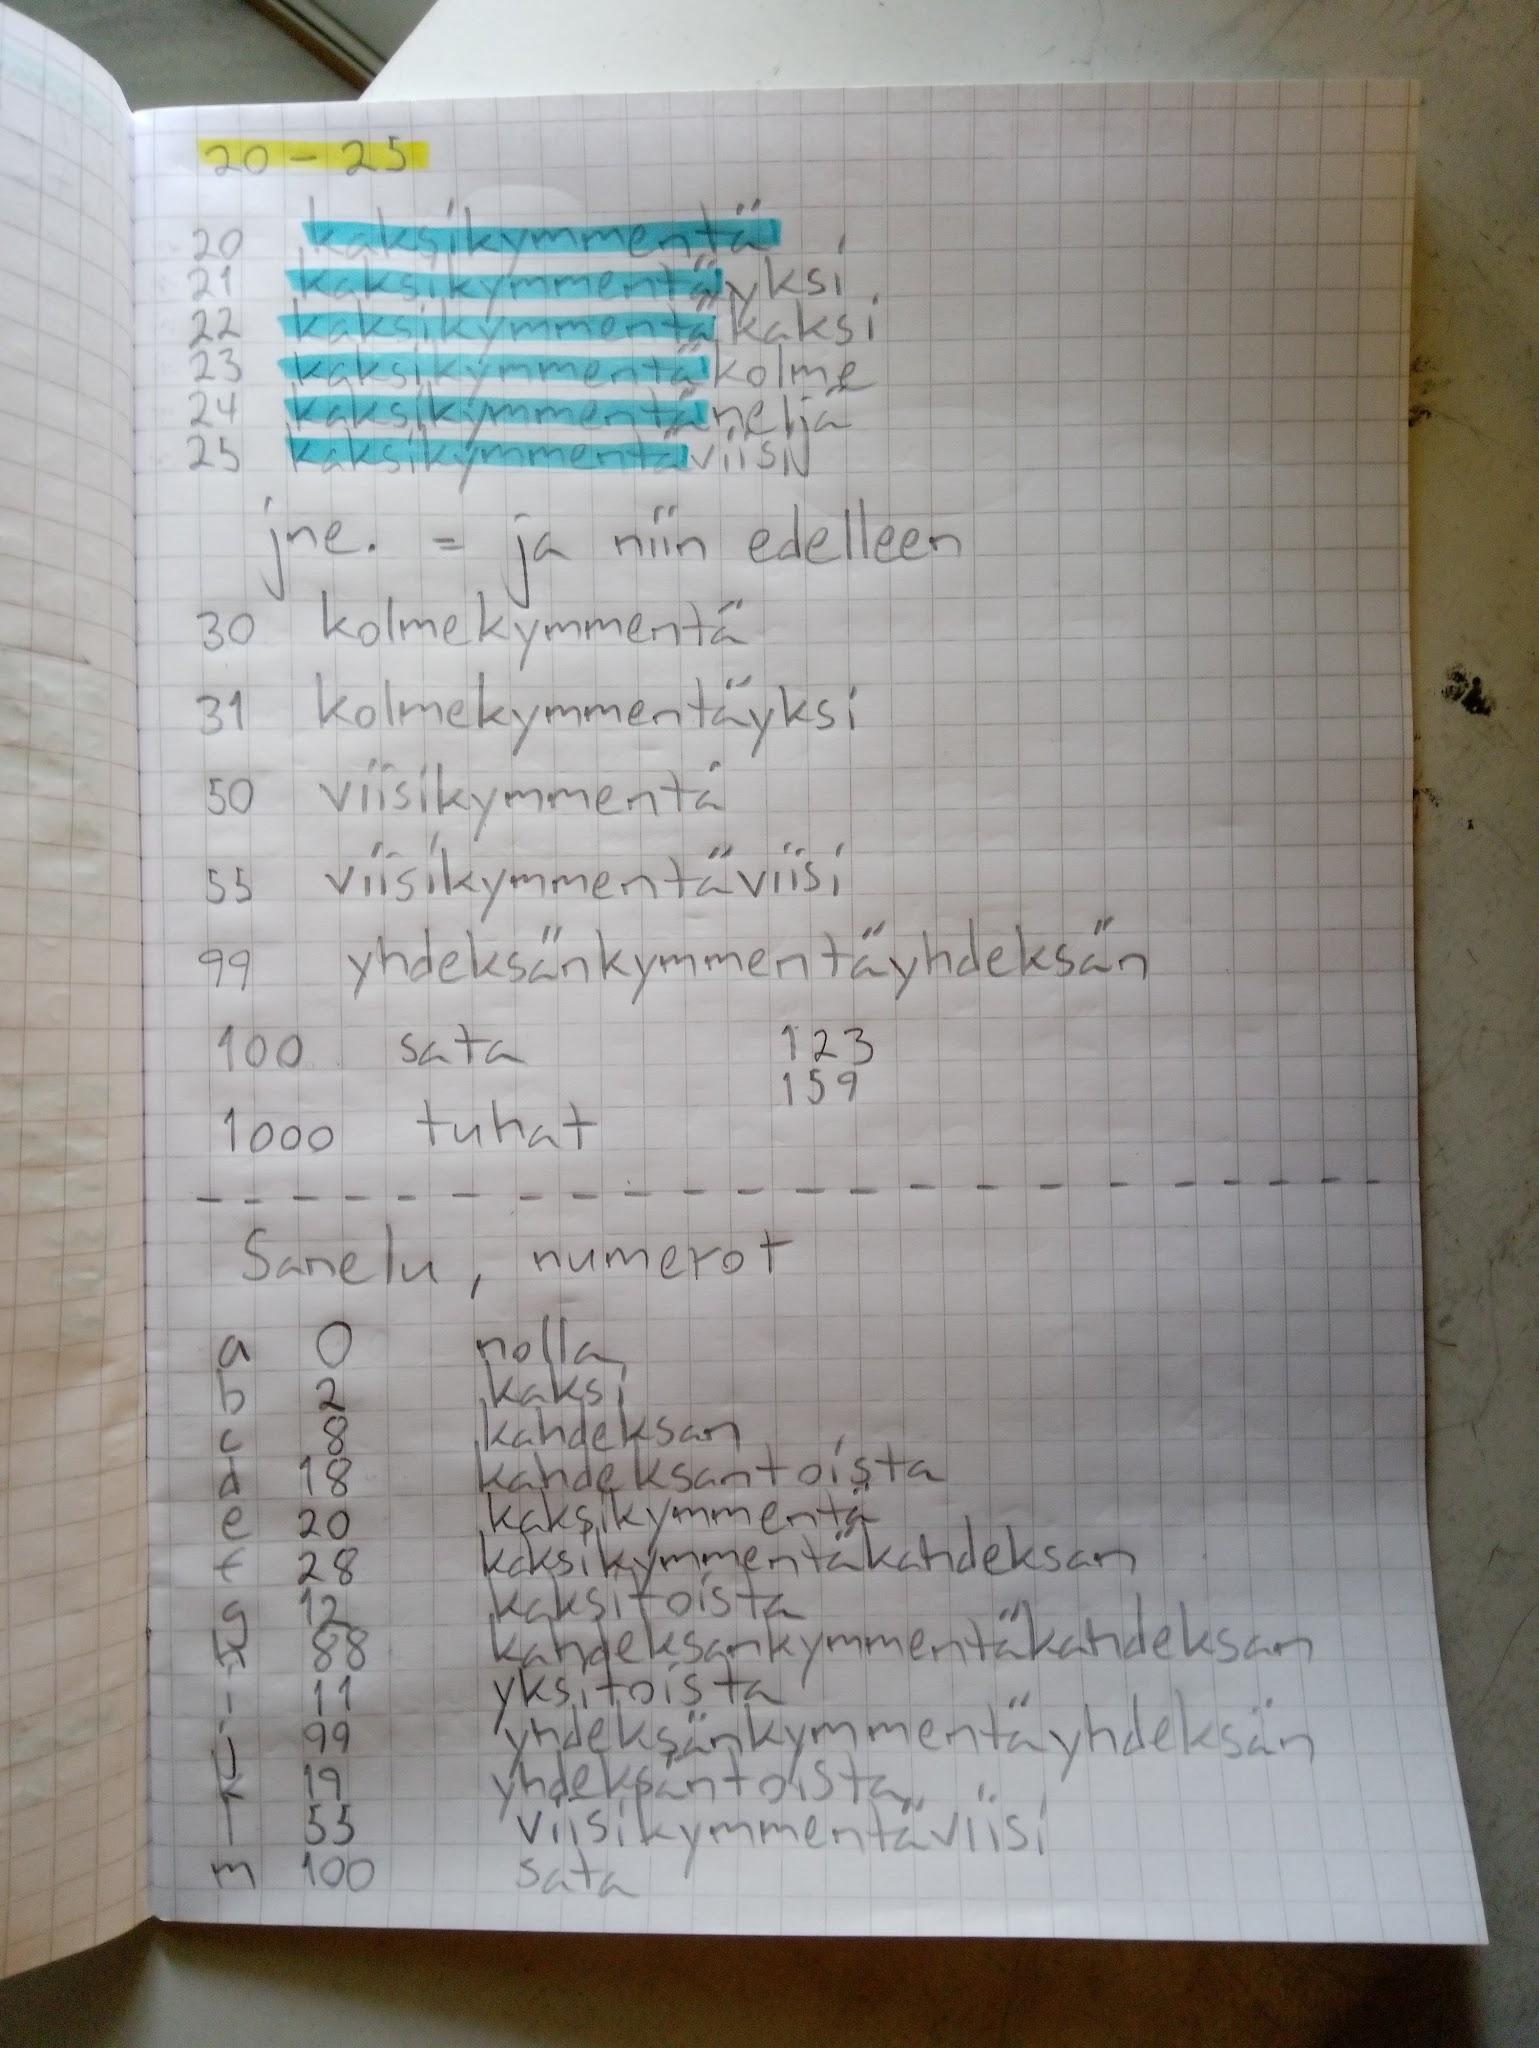 20 - 25
20 kaksikymmentä
21 kaksikymmentäyksi
22 kaksikymmentäkaksi
23 kaksikymmentäkolme
24 kaksikymmentäneljä
25 kaksikymmentäviisi
jne. = ja niin edelleen
30 kolmekymmentä
31 kolmekymmentäyksi
50 viisikymmentä
55 viisikymmentäviisi
99 yhdeksänkymmentäyhdeksän
100 sata 123
159
1000 tuhat
Sanelu, numerot
a 0 nolla
b 2 kaksi
c 8 kahdeksan
d 18 kahdeksantoista
e 20 kaksikymmentä
f 28 kaksikymmentäkahdeksan
g 12 kaksitoista
h 88 kahdeksankymmentäkahdeksan
i 11 yksitoista
j 99 yhdeksänkymmentäyhdeksän
k 19 yhdeksäntoista
l 55 viisikymmentäviisi
m 100 sata